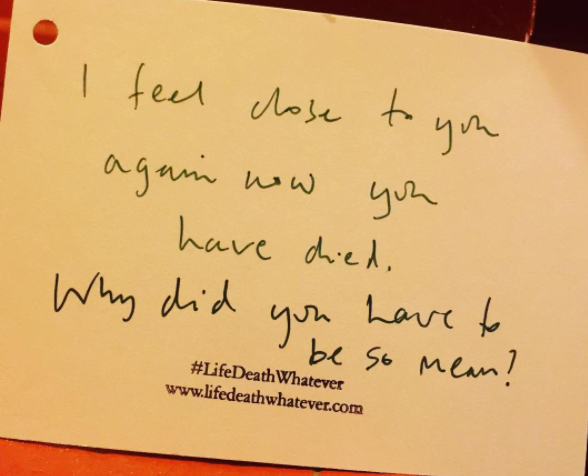 I feel close to you
again now you
have died.
Why did you have to
be so mean?
#LifeDeathWhatever
www.lifedeathwhatever.com